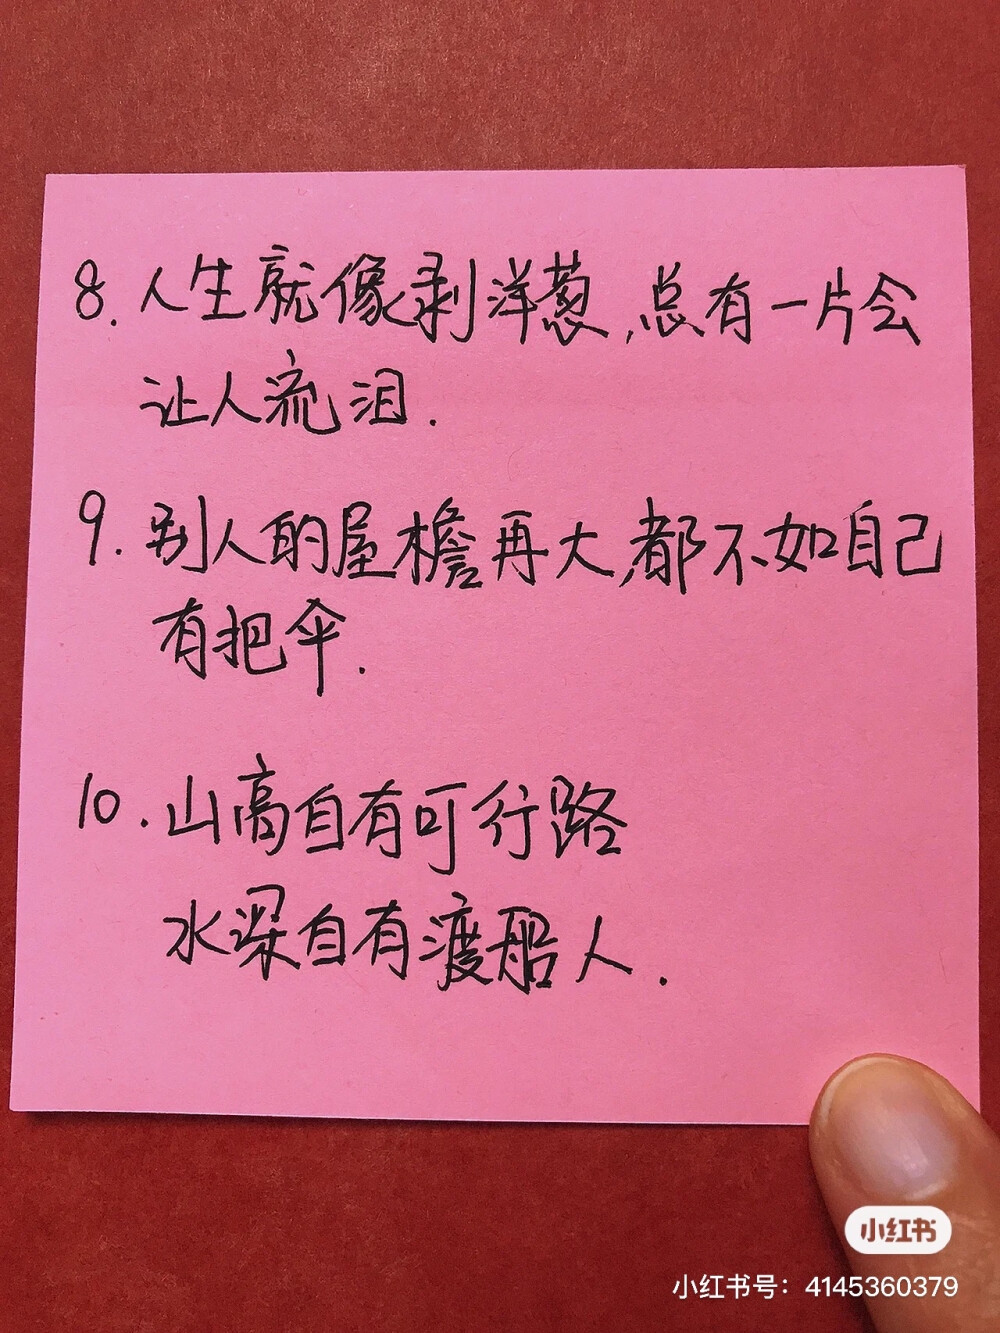 8. 人生就像剥洋葱,总有一片会
让人流泪.
9. 别人的屋檐再大,都不如自己
有把伞.
10. 山高自有可行路
水深自有渡船人.
小红书
小红书号：4145360379